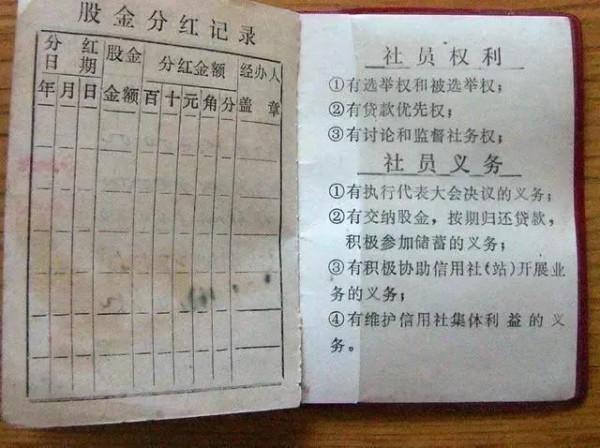 股金分红记录
分红日期 股金金额 分红金额 经办人盖章
年 月 日 百 十 元 角 分
社员权利
①有选举权和被选举权；
②有贷款优先权；
③有讨论和监督社务权；
社员义务
①有执行代表大会决议的义务；
②有交纳股金，按期归还贷款，
积极参加储蓄的义务；
③有积极协助信用社（站）开展业
务的义务；
④有维护信用社集体利益的义
务。